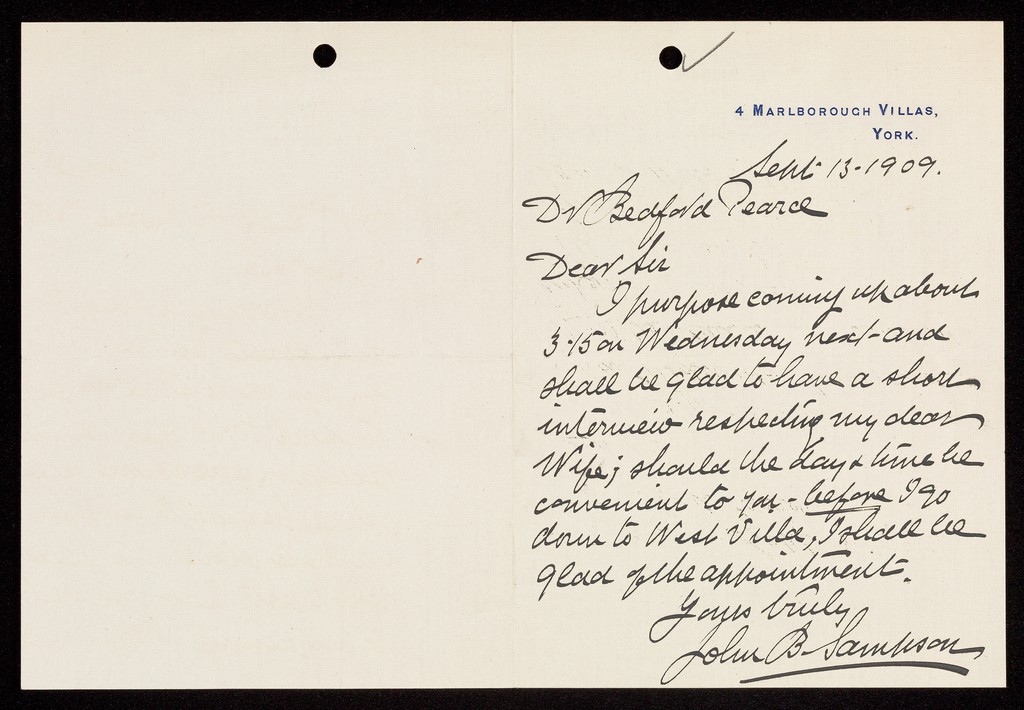 4 MARLBOROUGH VILLAS,
YORK.
Sept 13-1909.
Dr Bedford Pearce
Dear Sir
I purpose coming up about
3.15 on Wednesday next - and
shall be glad to have a short
interview respecting my dear
Wife; should the day & time be
convenient to you - before I go
down to West Villa, I shall be
glad of the appointment.
Yours truly
John B. Sampson